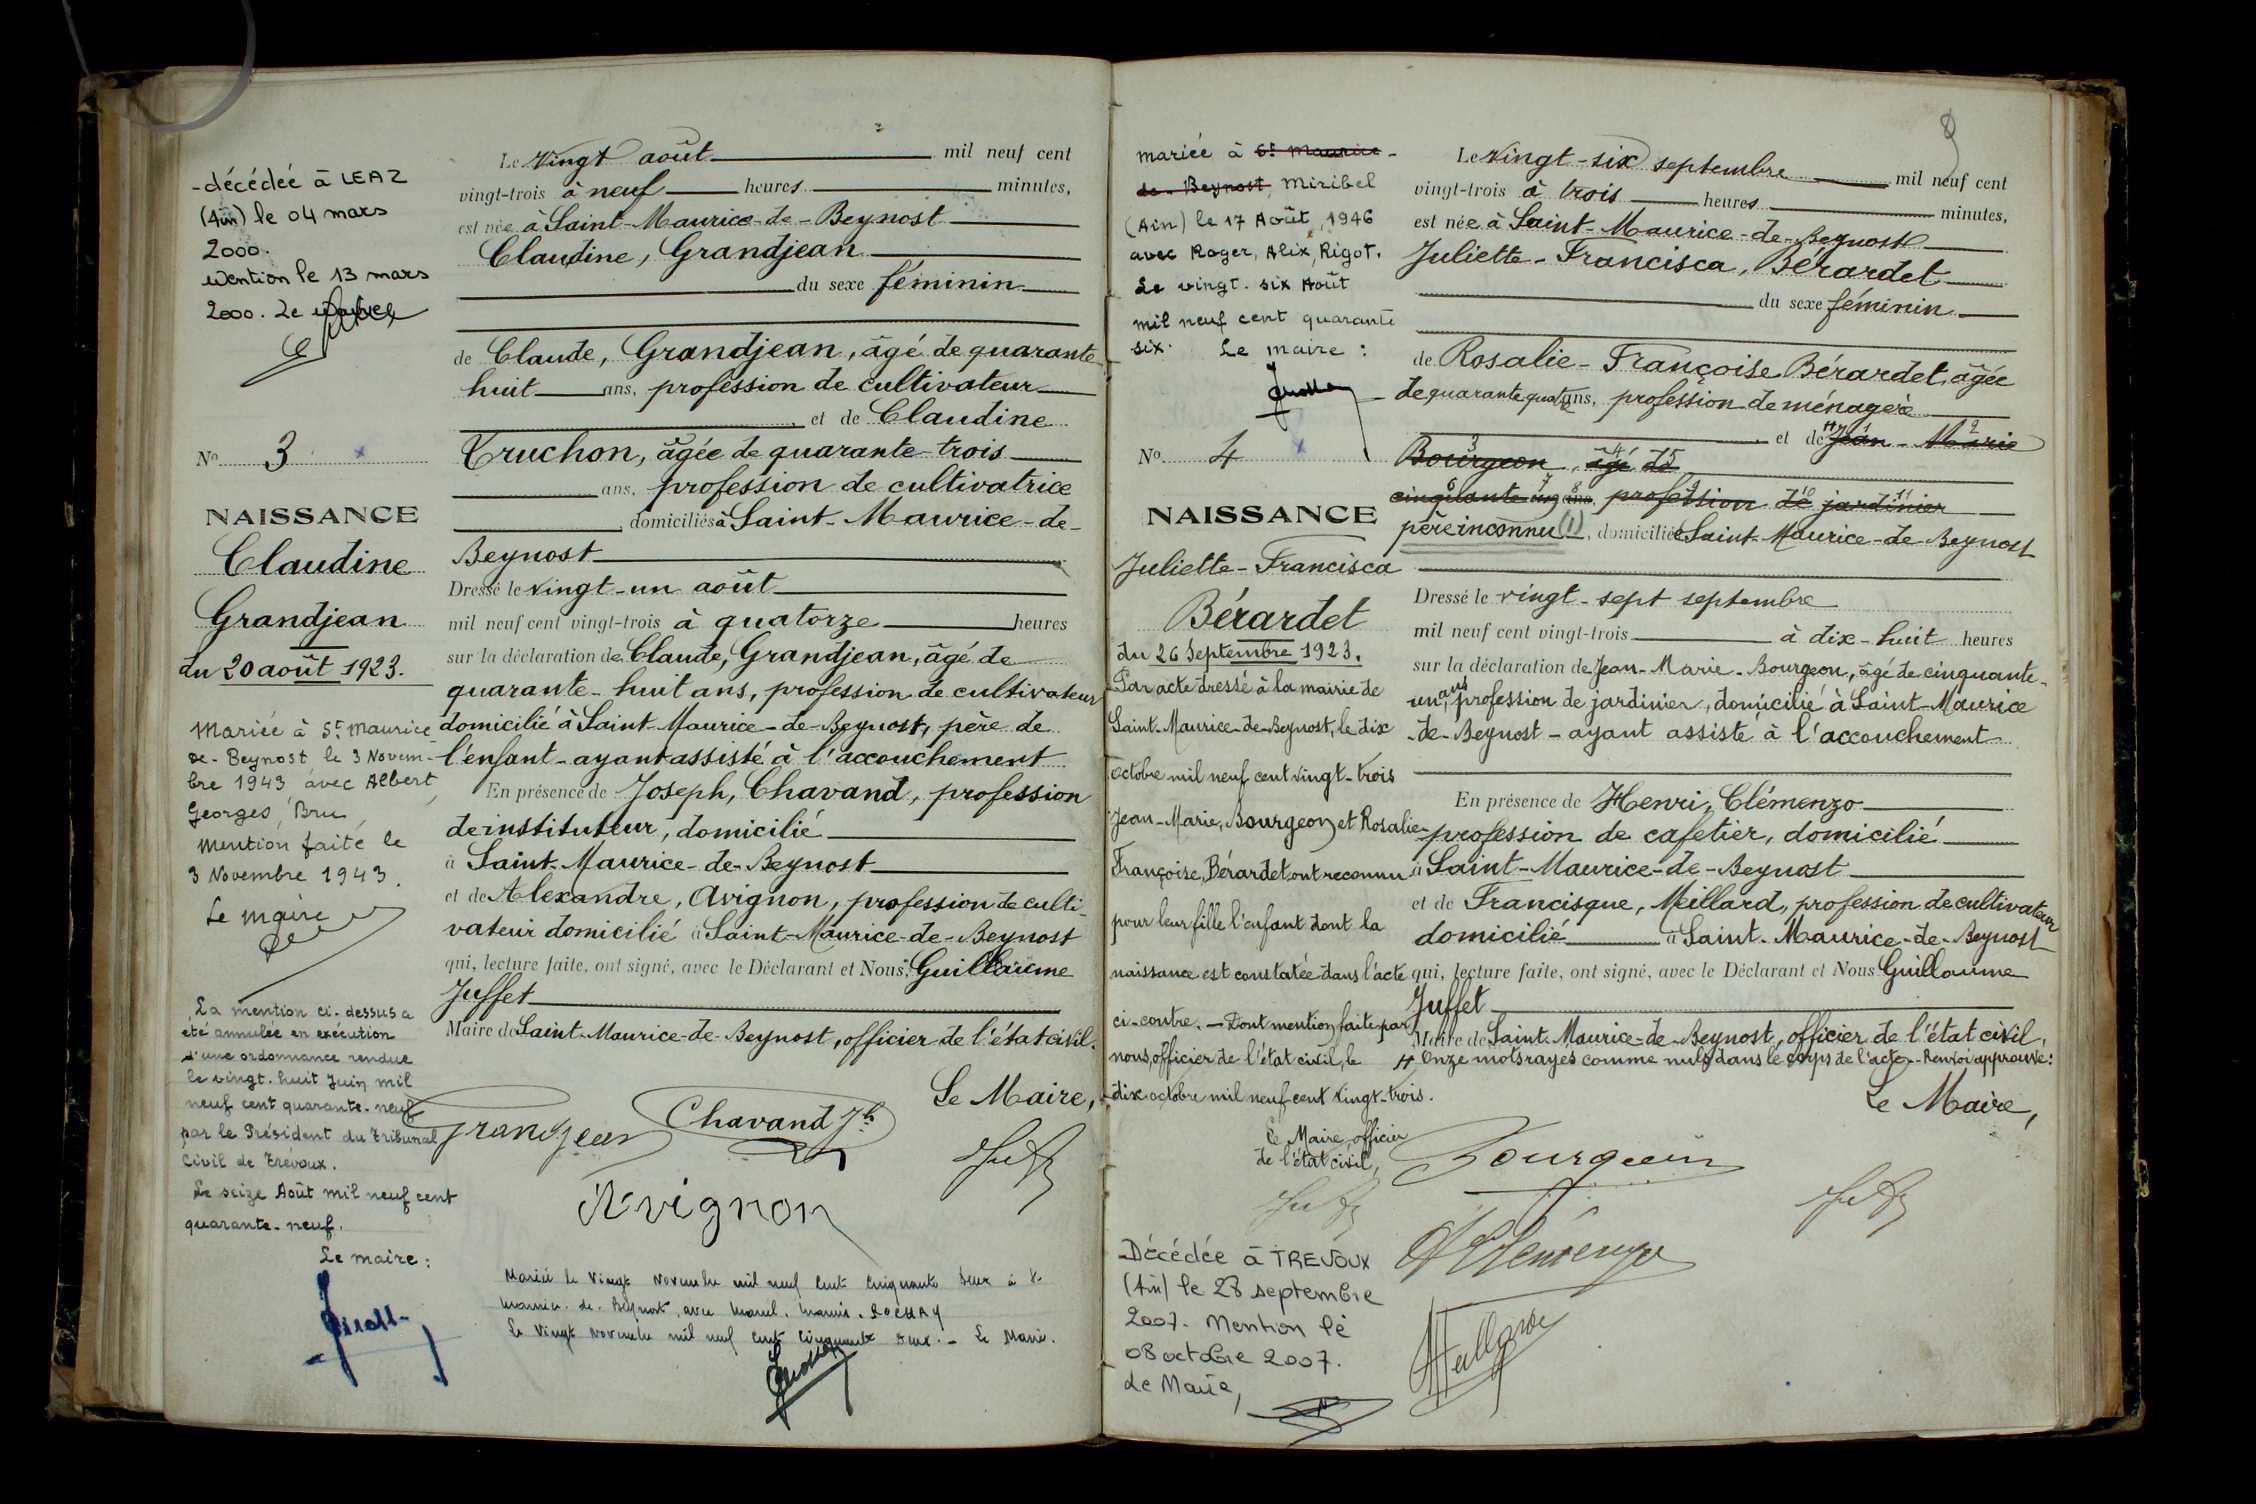 -décédée à LEAZ
(Ain) le 04 mars
2000.
Mention le 13 mars
2000. Le Maire
No 3
NAISSANCE
Claudine
Grandjean
du 20 août 1923.
Mariée à St Maurice
de-Beynost, le 3 Novem-
bre 1943 avec Albert,
Georges, Bru
Mention faite le
3 Novembre 1943.
Le maire
La mention ci-dessus a
été annulée en exécution
d'une ordonnance rendue
le vingt-huit Juin mil
neuf cent quarante-neuf
par le Président du Tribunal
Civil de Trévoux.
Le seize Août mil neuf cent
quarante-neuf.
Le maire:
Le Vingt août mil neuf cent
vingt-trois à neuf heures minutes,
est née à Saint-Maurice-de-Beynost
Claudine, Grandjean
du sexe féminin
de Claude, Grandjean, âgé de quarante-
huit ans, profession de cultivateur
et de Claudine
Truchon, âgée de quarante-trois
ans, profession de cultivatrice
domiciliés à Saint-Maurice-de-
Beynost
Dressé le vingt-un août
mil neuf cent vingt-trois à quatorze heures
sur la déclaration de Claude, Grandjean, âgé de
quarante-huit ans, profession de cultivateur
domicilié à Saint-Maurice-de-Beynost, père de
l'enfant-ayant assisté à l'accouchement
En présence de Joseph, Chavand, profession
de instituteur, domicilié
à Saint-Maurice-de-Beynost
et de Alexandre, Avignon, profession de culti-
vateur domicilié à Saint-Maurice-de-Beynost
qui, lecture faite, ont signé, avec le Déclarant et Nous, Guillaume
Juffet
Maire de Saint-Maurice-de-Beynost, officier de l'état civil.
Le Maire,
Grandjean Chavand Jh
Avignon
Mariée le vingt Novembre mil neuf cent cinquante deux à St
Maurice-de-Beynost, avec Marcel. Marius. ROCHAY
Le vingt Novembre mil neuf cent cinquante deux.- Le Maire.
mariée à St Maurice-
de-Beynost, Miribel
(Ain) le 17 Août, 1946
avec Roger, Alix, Rigot.
Le vingt-six Août
mil neuf cent quarante
six. Le maire:
No 4
NAISSANCE
Juliette-Francisca
Bérardet
du 26 Septembre 1923.
Par acte dressé à la mairie de
Saint-Maurice-de-Beynost, le dix
octobre mil neuf cent vingt-trois
Jean-Marie, Bourgeon, et Rosalie-
Françoise, Bérardet, ont reconnu
pour leur fille l'enfant dont la
naissance est constatée dans l'acte
ci-contre.-Dont mention faite par
nous, officier de l'état civil, le
dix octobre mil neuf cent vingt-trois.
Le Maire, officier
de l'état civil,
Décédée à TREVOUX
(Ain) le 28 septembre
2007. Mention le
08 octobre 2007.
Le Maire,
Le vingt-six septembre mil neuf cent
vingt-trois à trois heures minutes,
est née à Saint-Maurice-de-Beynost
Juliette-Francisca, Bérardet
du sexe féminin
de Rosalie-Françoise Bérardet, âgée
de quarante quatre ans, profession de ménagère
et de Jean-Marie
Bourgeon, âgé de
cinquante-cinq ans, profession de jardinier
père inconnu (1), domiciliée Saint-Maurice-de-Beynost
Dressé le vingt-sept septembre
mil neuf cent vingt-trois à dix-huit heures
sur la déclaration de Jean-Marie-Bourgeon, âgé de cinquante-
un ans, profession de jardinier, domicilié à Saint-Maurice
-de-Beynost-ayant assisté à l'accouchement
En présence de Henri, Clémenzo
profession de cafetier, domicilié
à Saint-Maurice-de-Beynost
et de Francisque, Meillard, profession de cultivateur
domicilié à Saint-Maurice-de-Beynost
qui, lecture faite, ont signé, avec le Déclarant et Nous Guillaume
Juffet
Maire de Saint-Maurice-de-Beynost, officier de l'état civil.
H Onze mots rayés comme nuls dans le corps de l'acte.-Renvoi approuvé:
Le Maire,
Bourgeon